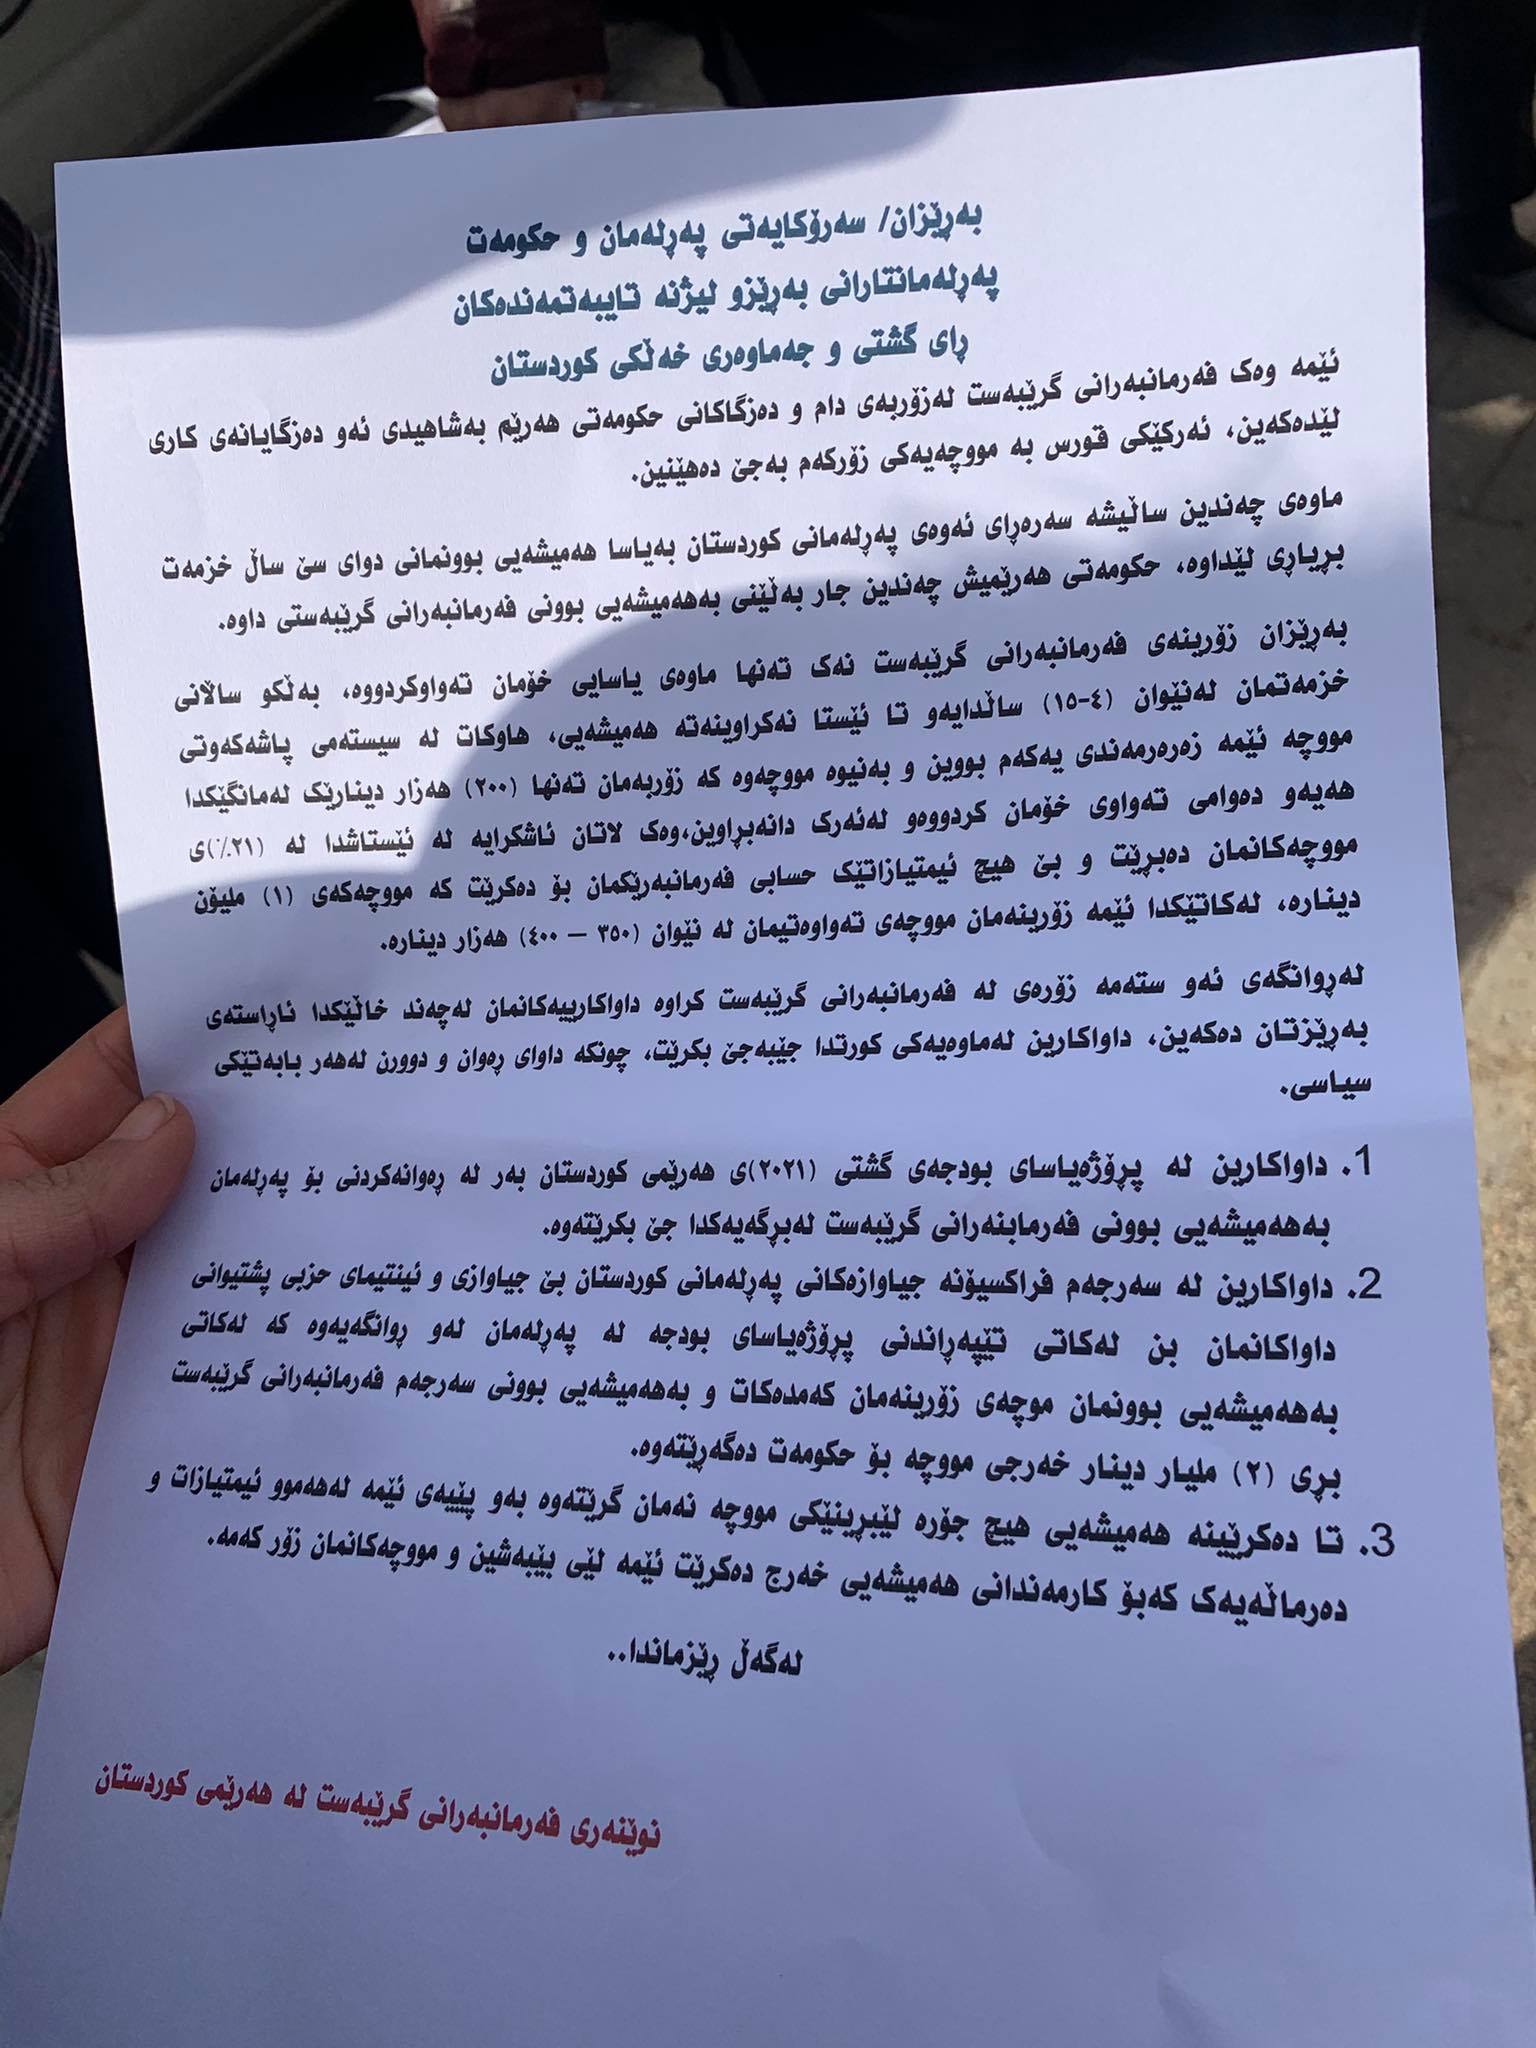 بەڕێزان/ سەرۆکایەتی پەڕلەمان و حکومەت
پەڕلەمانتارانی بەڕێزو لیژنە تایبەتمەندەکان
ڕای گشتی و جەماوەری خەڵکی کوردستان
ئێمە وەک فەرمانبەرانی گرێبەست لەزۆربەی دام و دەزگاکانی حکومەتی هەرێم بەشاهیدی ئەو دەزگایانەی کاری
لێدەکەین، ئەرکێکی قورس بە مووچەیەکی زۆرکەم بەجێ دەهێنین.
ماوەی چەندین ساڵیشە سەرەڕای ئەوەی پەڕلەمانی کوردستان بەیاسا هەمیشەیی بوونمانی دوای سێ ساڵ خزمەت
بڕیاڕی لێداوە، حکومەتی هەرێمیش چەندین جار بەڵێنی بەهەمیشەیی بوونی فەرمانبەرانی گرێبەستی داوە.
بەڕێزان زۆرینەی فەرمانبەرانی گرێبەست نەک تەنها ماوەی یاسایی خۆمان تەواوکردووە، بەڵکو ساڵانی
خزمەتمان لەنێوان (٤-١٥) ساڵدایەو تا ئێستا نەکراوینەتە هەمیشەیی، هاوکات لە سیستەمی پاشەکەوتی
مووچە ئێمە زەرەرمەندی یەکەم بووین و بەنیوە مووچەوە کە زۆربەمان تەنها (٢٠٠) هەزار دینارێک لەمانگێکدا
هەیەو دەوامی تەواوی خۆمان کردووەو لەئەرک دانەبڕاوین،وەک لاتان ئاشکرایە لە ئێستاشدا لە (٢١٪)ی
مووچەکانمان دەبڕێت و بێ هیچ ئیمتیازاتێک حسابی فەرمانبەرێکمان بۆ دەکرێت کە مووچەکەی (١) ملیۆن
دینارە، لەکاتێکدا ئێمە زۆرینەمان مووچەی تەواوەتیمان لە نێوان (٣٥٠ – ٤٠٠) هەزار دینارە.
لەڕوانگەی ئەو ستەمە زۆرەی لە فەرمانبەرانی گرێبەست کراوە داواکارییەکانمان لەچەند خاڵێکدا ئاڕاستەی
بەڕێزتان دەکەین، داواکارین لەماوەیەکی کورتدا جێبەجێ بکرێت، چونکە داوای ڕەوان و دوورن لەهەر بابەتێکی
سیاسی.
1. داواکارین لە پڕۆژەیاسای بودجەی گشتی (٢٠٢١)ی هەرێمی کوردستان بەر لە ڕەوانەکردنی بۆ پەڕلەمان
بەهەمیشەیی بوونی فەرمابنەرانی گرێبەست لەبڕگەیەکدا جێ بکرێتەوە.
2. داواکارین لە سەرجەم فراکسیۆنە جیاوازەکانی پەڕلەمانی کوردستان بێ جیاوازی و ئینتیمای حزبی پشتیوانی
داواکانمان بن لەکاتی تێپەڕاندنی پڕۆژەیاسای بودجە لە پەڕلەمان لەو ڕوانگەیەوە کە لەکاتی
بەهەمیشەیی بوونمان موچەی زۆرینەمان کەمدەکات و بەهەمیشەیی بوونی سەرجەم فەرمانبەرانی گرێبەست
بڕی (٢) ملیار دینار خەرجی مووچە بۆ حکومەت دەگەڕێتەوە.
3. تا دەکرێینە هەمیشەیی هیچ جۆرە لێبڕینێکی مووچە نەمان گرێتەوە بەو پێیەی ئێمە لەهەموو ئیمتیازات و
دەرماڵەیەک کەبۆ کارمەندانی هەمیشەیی خەرج دەکرێت ئێمە لێی بێبەشین و مووچەکانمان زۆر کەمە.
لەگەڵ ڕێزماندا..
نوێنەری فەرمانبەرانی گرێبەست لە هەرێمی کوردستان